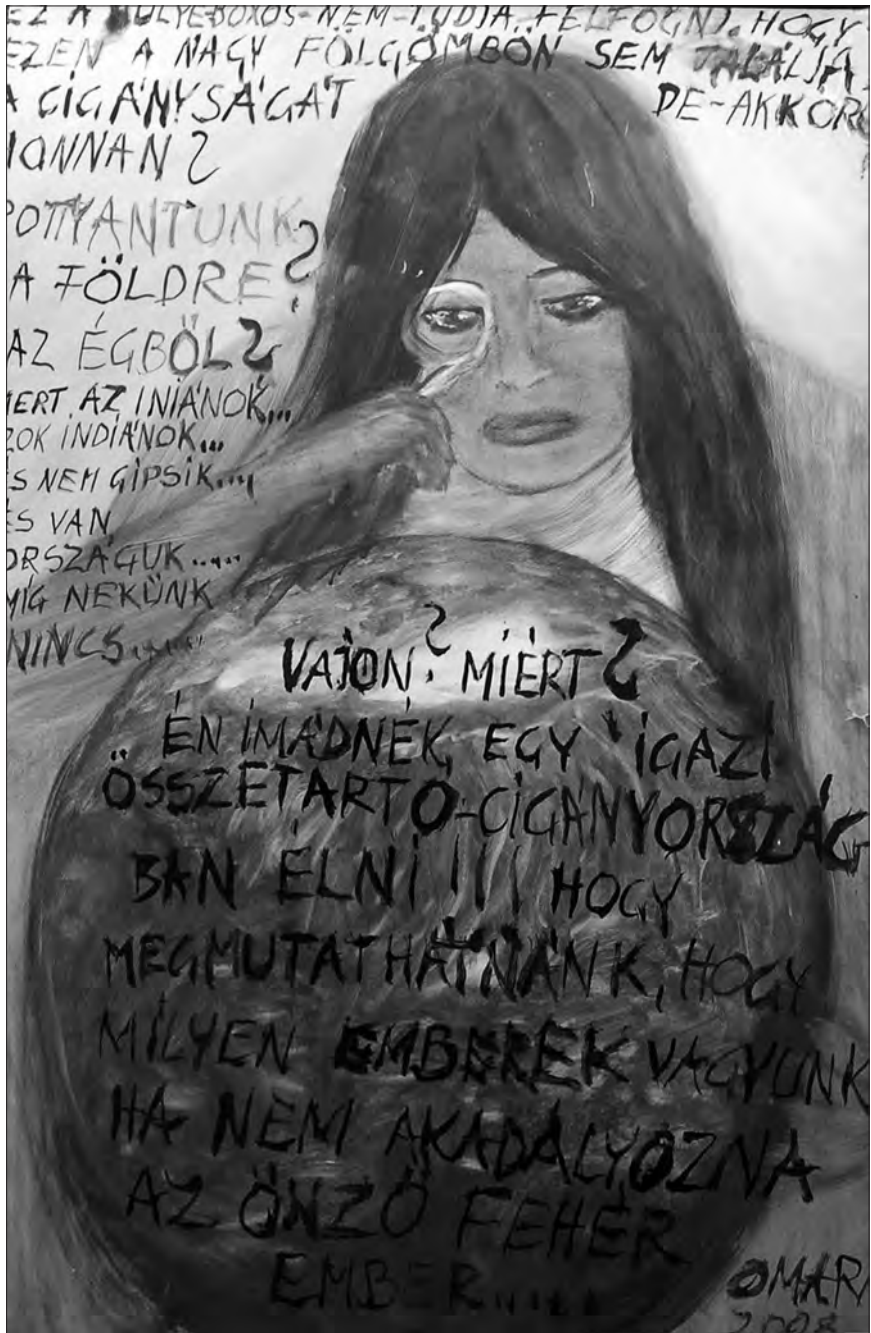 EZ A HÜLYE BOXOS-NEM-TUDJA FELFOGNI. HOGY
EZEN A NAGY FÖLGÖMBÖN SEM TALÁLJA
A CIGÁNYSÁGÁT DE-AKKOR
HONNAN?
POTTYANTUNK
A FÖLDRE?
AZ ÉGBŐL?
MERT. AZ INIÁNOK...
AZOK INDIÁNOK...
ÉS NEM GIPSIK....
ÉS VAN
ORSZÁGUK.....
MÍG NEKÜNK
NINCS......
VAJON? MIÉRT?
ÉN IMÁDNÉK, EGY IGAZI
ÖSSZETARTO-CIGÁNYORSZÁG
BAN ÉLNI!!! HOGY
MEGMUTATHATNÁNK, HOGY
MILYEN EMBEREK VAGYUNK
HA NEM AKADÁLYOZNA
AZ ÖNZŐ FEHÉR
EMBER.....
OMARA
2008